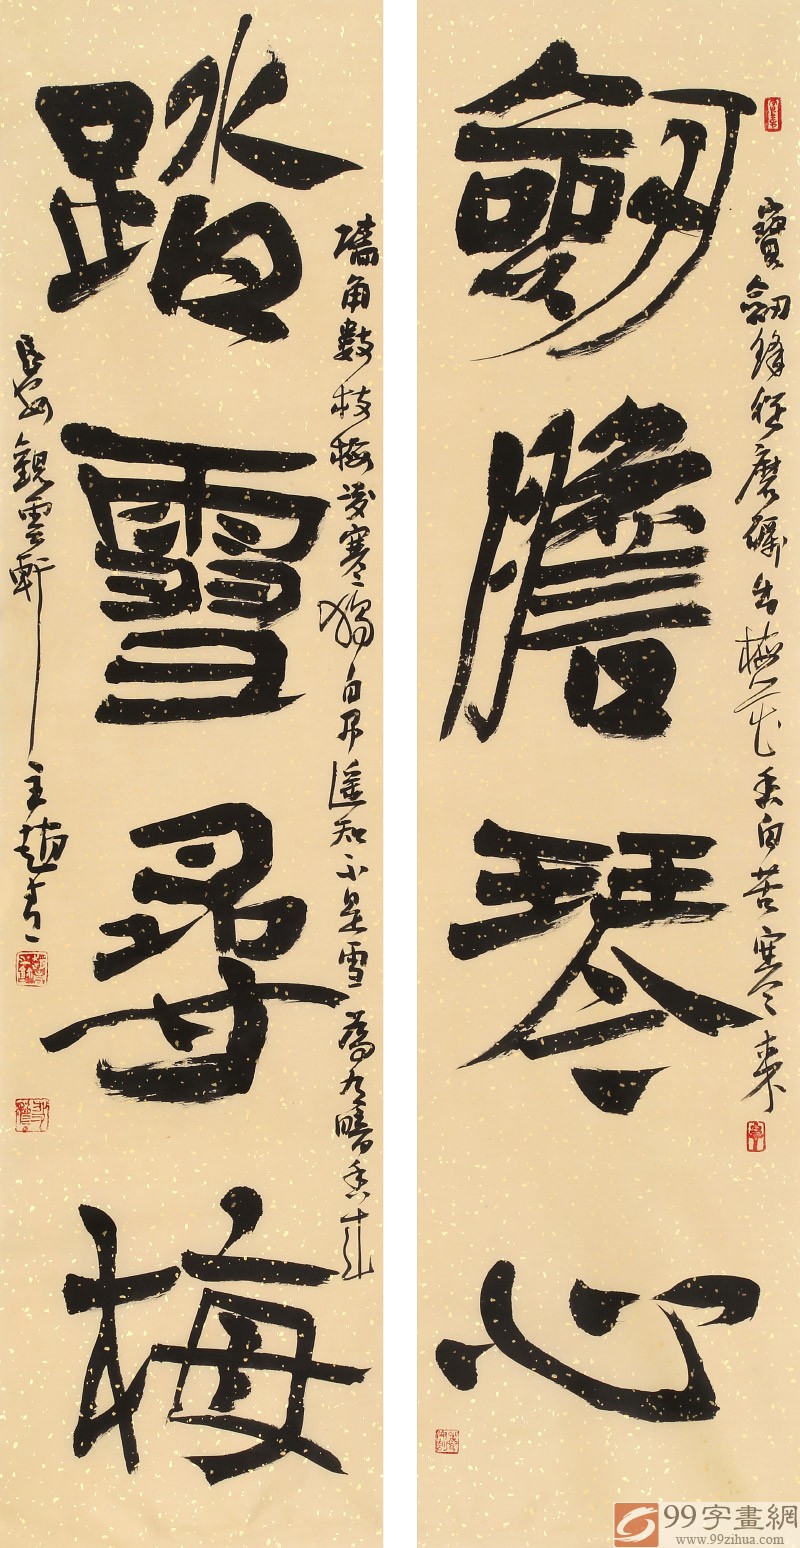 劒膽琴心
寶劒鋒從磨礪出梅花香自苦寒來
踏雪尋梅
墻角數枝梅凌寒獨自開遥知不是雪爲有暗香來
長安觀雲軒主趙青
99字畫網
www.99zihua.com